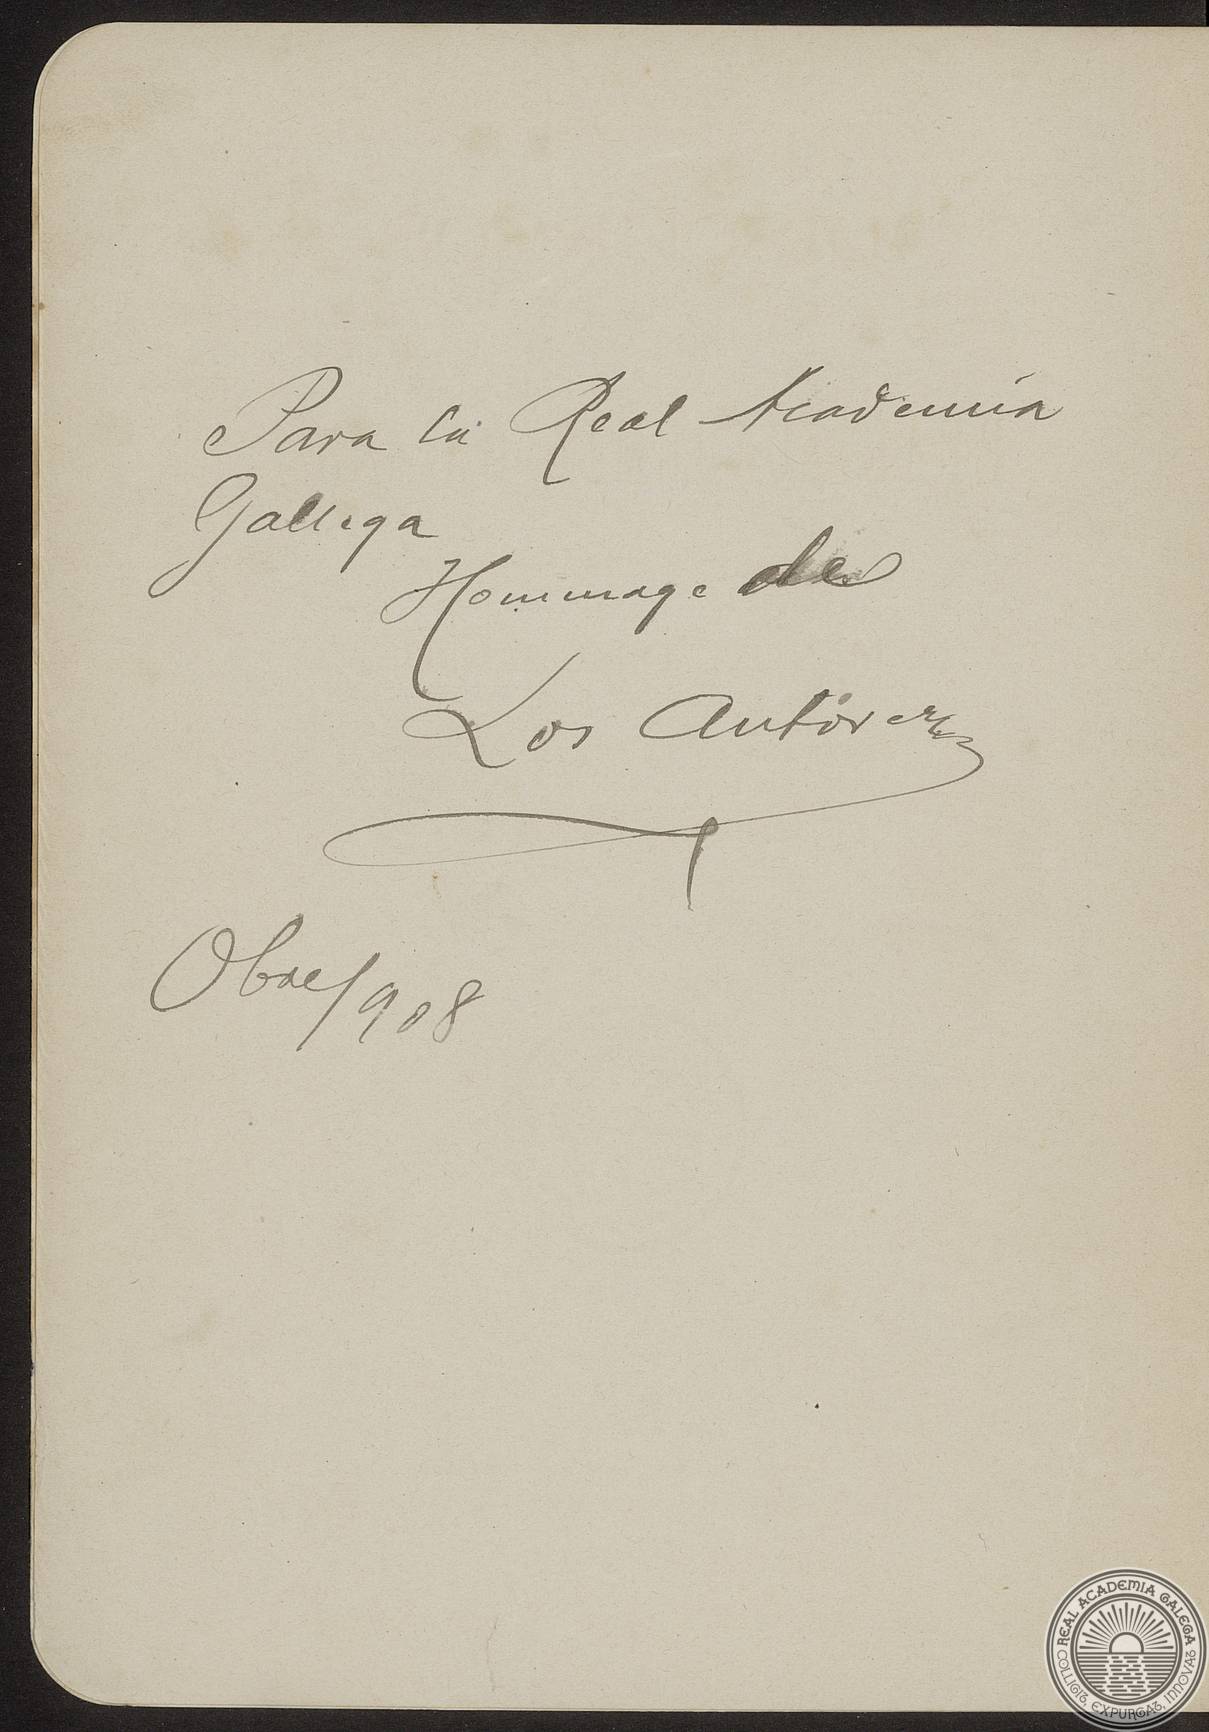 Para la Real Academia
Gallega
Hommage de
Los Autores
Obre/908
REAL ACADEMIA GALEGA
COLLIGIT, EXPURGAT, INNOVAT